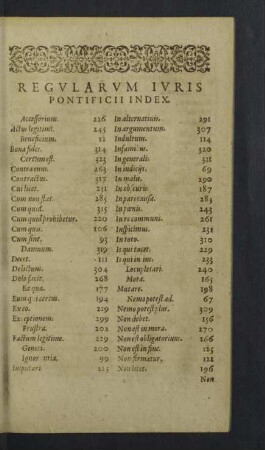 REGVLARVM IVRIS
PONTIFICII INDEX.
Accessorium. 226
Actus legitimi. 245
Beneficium. 12
Bona fides. 314
Certum est. 323
Contra eum. 263
Contractus. 317
Cui licet. 231
Cum non stat. 285
Cum quis. 315
Cum quid prohibetur. 220
Cum quis. 106
Cum sint. 93
Damnum. 319
Decet. 111
Delictum. 304
Dolo facit. 268
Ea quæ. 177
Eum qui certus. 194
Ex eo. 219
Exceptionem. 299
Frustra. 202
Factum legitime. 229
Generi. 200
Ignorantia. 99
Imputari. 225
In alternatiuis. 291
In argumentum. 307
Indultum. 114
Infamibus. 320
In generali. 321
In iudicijs. 69
In malis. 290
In obscuris. 187
In pari causa. 283
In pœnis. 243
In re communi. 261
Inspicimus. 231
In toto. 310
Is qui tacet. 229
Is qui in ius. 233
Locupletari. 240
Mora. 165
Mutare. 198
Nemo potest ad. 67
Nemo potest plus. 309
Non debet. 156
Non est in mora. 270
Non est obligatorium. 266
Non est in sine. 125
Non firmatur, 121
Non licet. 196
Non